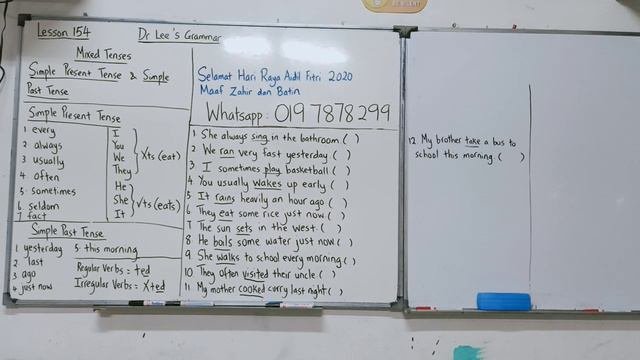 Lesson 154
Dr Lee's Grammar
Mixed Tenses
Simple Present Tense & Simple
Past Tense
Simple Present Tense
1 every
2 always
3 usually
4 often
5 sometimes
6 seldom
7 fact
I
You
We
They
Xts (eat)
He
She
It
Vts (eats)
Simple Past Tense
1 yesterday
2 last
3 ago
4 just now
5 this morning
Regular Verbs = ted
Irregular Verbs = Xted
Selamat Hari Raya Aidil Fitri 2020
Maaf Zahir dan Batin
Whatsapp : 019 7878 299
1 She always sing in the bathroom ( )
2 We ran very fast yesterday ( )
3 I sometimes play basketball ( )
4 You usually wakes up early ( )
5 It rains heavily an hour ago ( )
6 They eat some rice just now ( )
7 The sun sets in the west. ( )
8 He boils some water just now ( )
9 She walks to school every morning ( )
10 They often visited their uncle. ( )
11 My mother cooked curry last night ( )
12. My brother take a bus to
school this morning. ( )